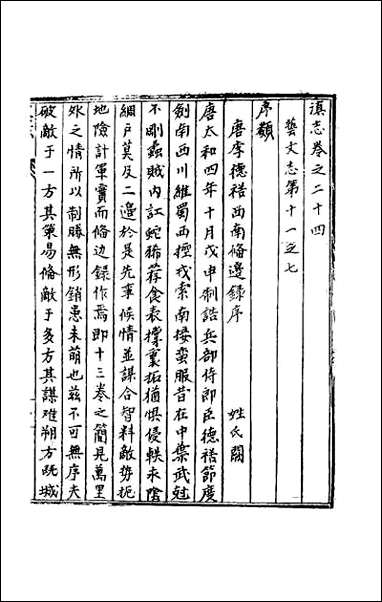 滇志卷之二十四
藝文志第十一之七
序類
唐李德裕西南備邊錄序 姓氏闕
唐太和四年十月戊申制誥兵部侍郎臣德裕節度
劍南西川維蜀西控戎索南接蠻服昔在中葉武尅
不剛蟊賊內訌蛇豨荐食表攘裏拓猶懼侵軼未陰
綢户莫及二邉於是先事候情並謀合智料敵势扼
地險計軍實而俻邉錄作焉即十三卷之簡見萬里
外之情所以制勝無形銷患未萌也兹不可無序夫
破敵于一方其策易俻敵于多方其謀难朔方既城